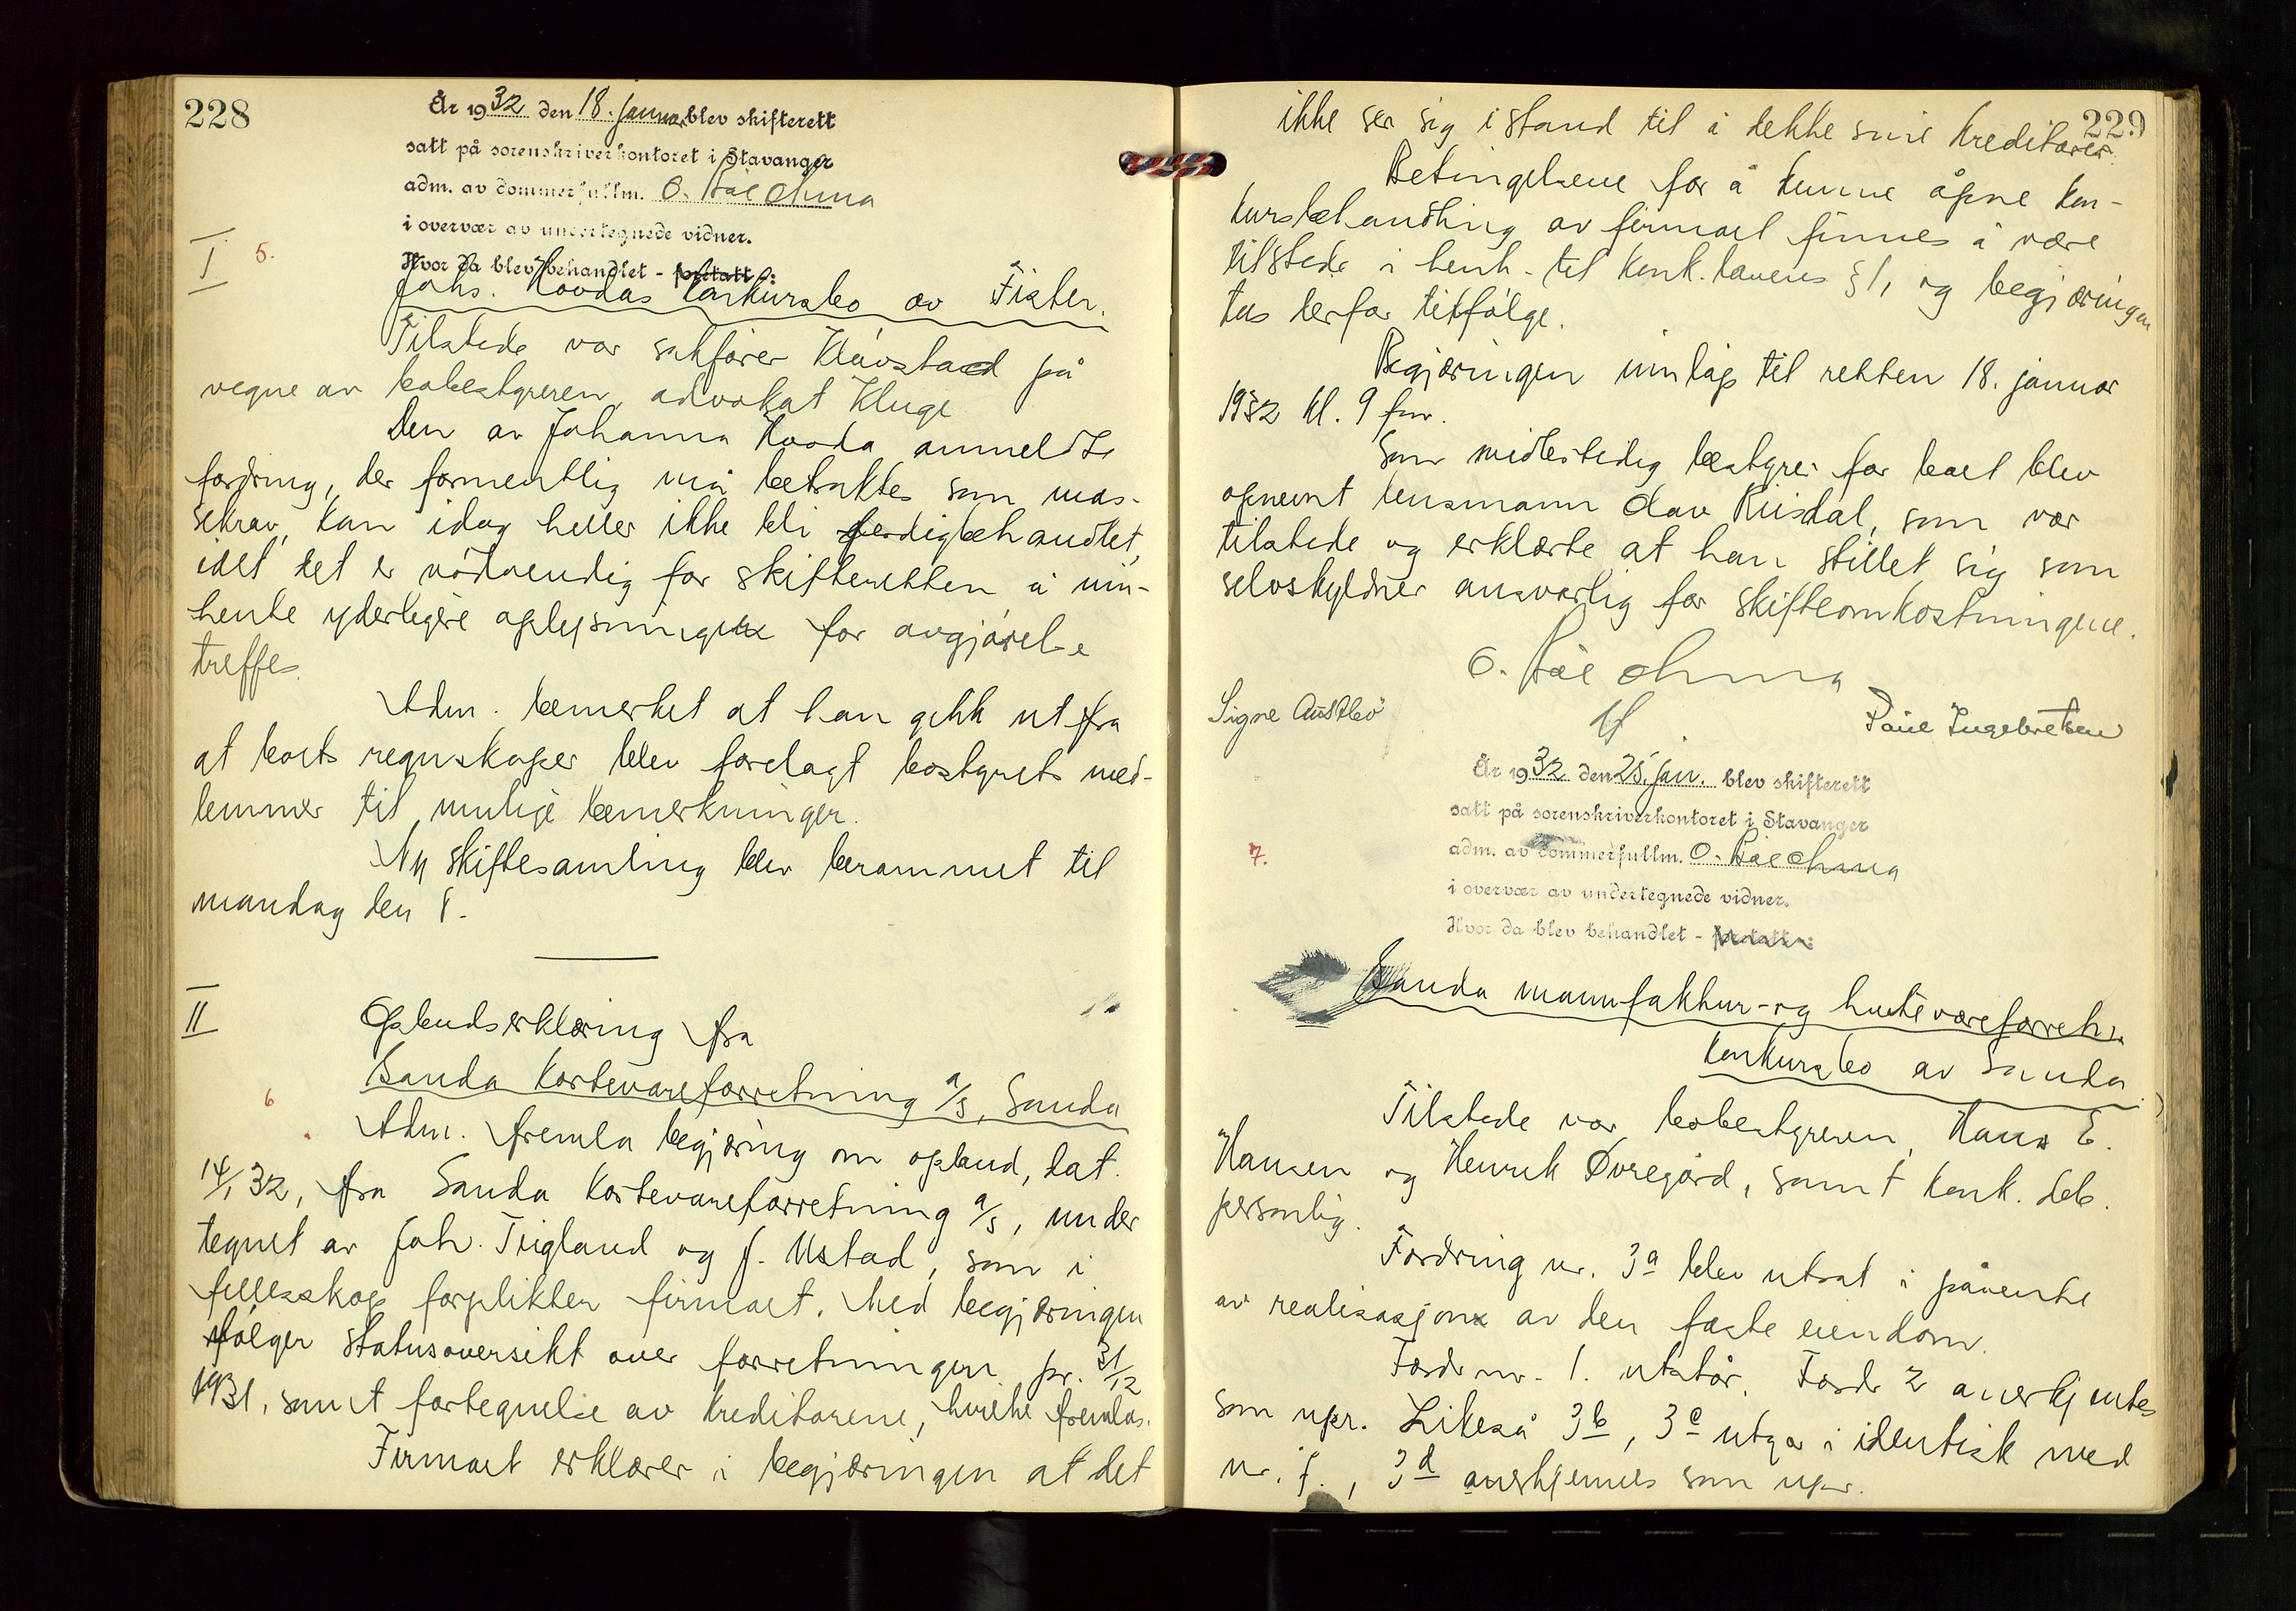 228
År 1932 den 18. januar blev skifterett
satt på sorenskriverkontoret i Stavanger
adm. av dommerfullm. O. Røie Ohma
i overvær av undertegnede vidner.
I 5.
Hvor da blev behandlet - fortsatt:
Johs. Hovdas konkursbo av Fister.
Tilstede var sakfører Kløvstad på
vegne av bobestyreren, advokat Kluge
Den av Johanna Hovda anmeldte
fordring, der formentlig må betraktes som mas-
sekrav, kan idag heller ikke bli ferdigbehandlet,
idet det er nödvendig for skifteretten å inn-
hente yderligere oplysninger før avgjørelse
treffes.
Adm. bemerket at han gikk ut fra
at boets regnskaper blev forelagt bostyrets med-
lemmer til mulige bemerkninger.
Ny skiftesamling blev berammet til
mandag den 8.
II
Opbudserklæring fra
6
Sanda Kortevareforretning a/s, Sanda
Adm. fremla begjæring om opbud, dat.
14/1 32, fra Sanda Kortevareforretning a/s, under
tegnet av Joh. Tigland og J. Ustad, som i
fellesskap forplikter firmaet. Med begjæringen
følger statusoversikt over forretningen pr. 31/12
1931, samt fortegnelse av kreditorene, hvilke fremlas.
Firmaet erklærer i begjæringen at det
229
ikke ser sig istand til å dekke sine kreditorer
Betingelsene for å kunne åpne kon-
kursbehandling av firmaet finnes å være
tilstede i henh. til konk.lovens § 1, og begjæringen
tas derfor tilfølge.
Begjæringen innløp til retten 18. januar
1932 kl. 9 fm.
Som midlertidig bestyrer for boet blev
opnevnt lensmann Olav Riisdal, som var
tilstede og erklærte at han stillet sig som
selvskyldner ansvarlig for skifteomkostningene.
O. Røie Ohma
Signe Austbö
Paul Ingebretsen
År 1932 den 25. jan. blev skifterett
satt på sorenskriverkontoret i Stavanger
7.
adm. av dommerfullm. O. Røie Ohma
i overvær av undertegnede vidner.
Hvor da blev behandlet - fortsatt:
Sanda manufaktur- og hvitevareforretn.
konkursbo av Sanda
Tilstede var bobestyreren, Hans E.
Hansen og Henrik Øvregård, samt konk. deb.
personlig.
Fordring nr. 3a blev utsat i påvente
av realisasjon av den faste eiendom.
Fordr nr. 1. utstår. Fordr 2 anerkjentes
som upr. Likeså 3b, 3c utgår i identisk med
nr. f., 3d anerkjennes som upr.